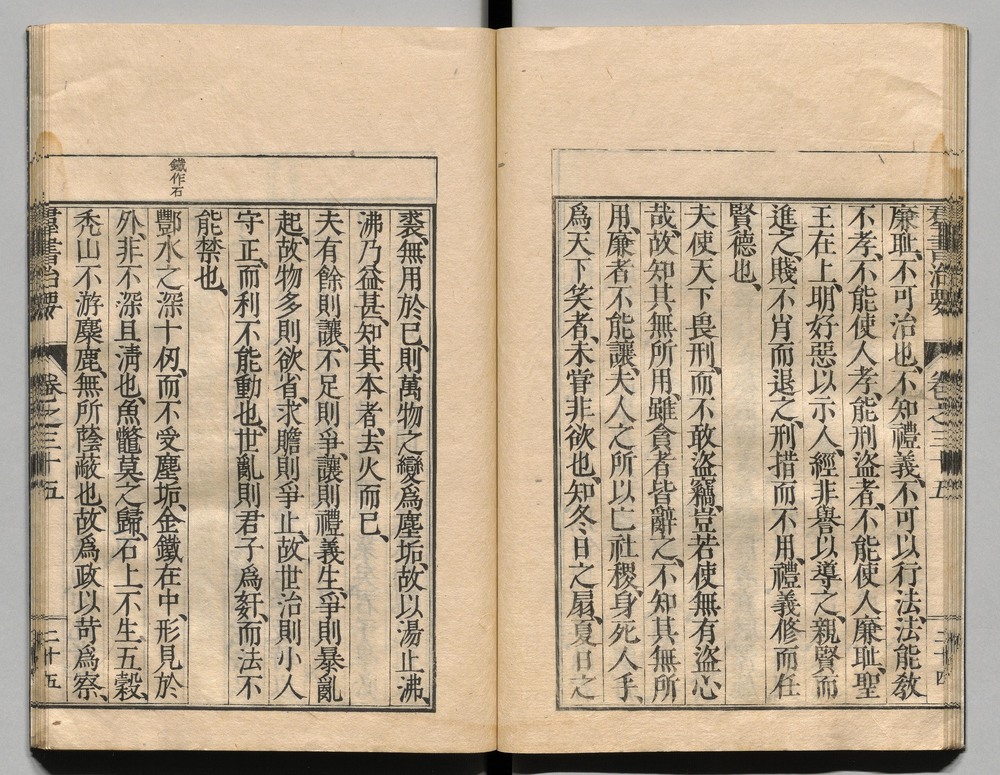 群書治要 卷之三十五 二十四
廉耻、不可治也、不知禮義、不可以行法、法能敎
不孝、不能使人孝、能刑盜者、不能使人廉耻、聖
王在上、明好惡以示人、經非譽以導之、親賢而
進之、賤不肖而退之、刑措而不用、禮義修而任
賢德也、
夫使天下畏刑、而不敢盜竊、豈若使無有盜心
哉、故知其無所用、雖貪者皆辭之、不知其無所
用、廉者不能讓、夫人之所以亡社稷、身死人手、
爲天下笑者、未甞非欲也、知冬日之扇、夏日之
裘、無用於已、則萬物之變爲塵垢、故以湯止沸、
沸乃益甚、知其本者、去火而已、
夫有餘則讓、不足則爭、讓則禮義生、爭則暴亂
起、故物多則欲省、求贍則爭止、故世治則小人
守正、而利不能動也、世亂則君子爲姦、而法不
能禁也、
鐵作石
酆水之深十仞、而不受塵垢、金鐵在中、形見於
外、非不深且淸也、魚鼈莫之歸、石上不生五穀、
禿山不游麋鹿、無所蔭蔽也、故爲政以苛爲察、
群書治要 卷之三十五 二十五